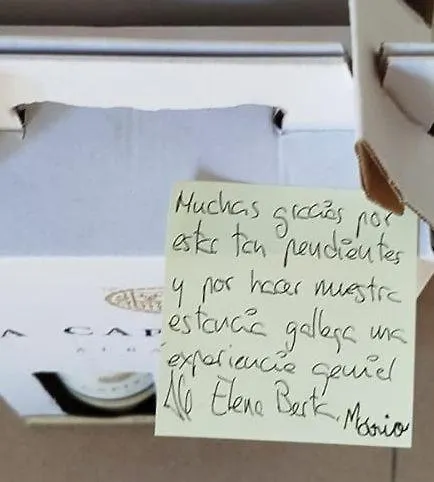 Muchas gracias por
estar tan pendientes
y por hacer nuestra
estancia gallega una
experiencia genial
Elena Berta, Mario
A CAP